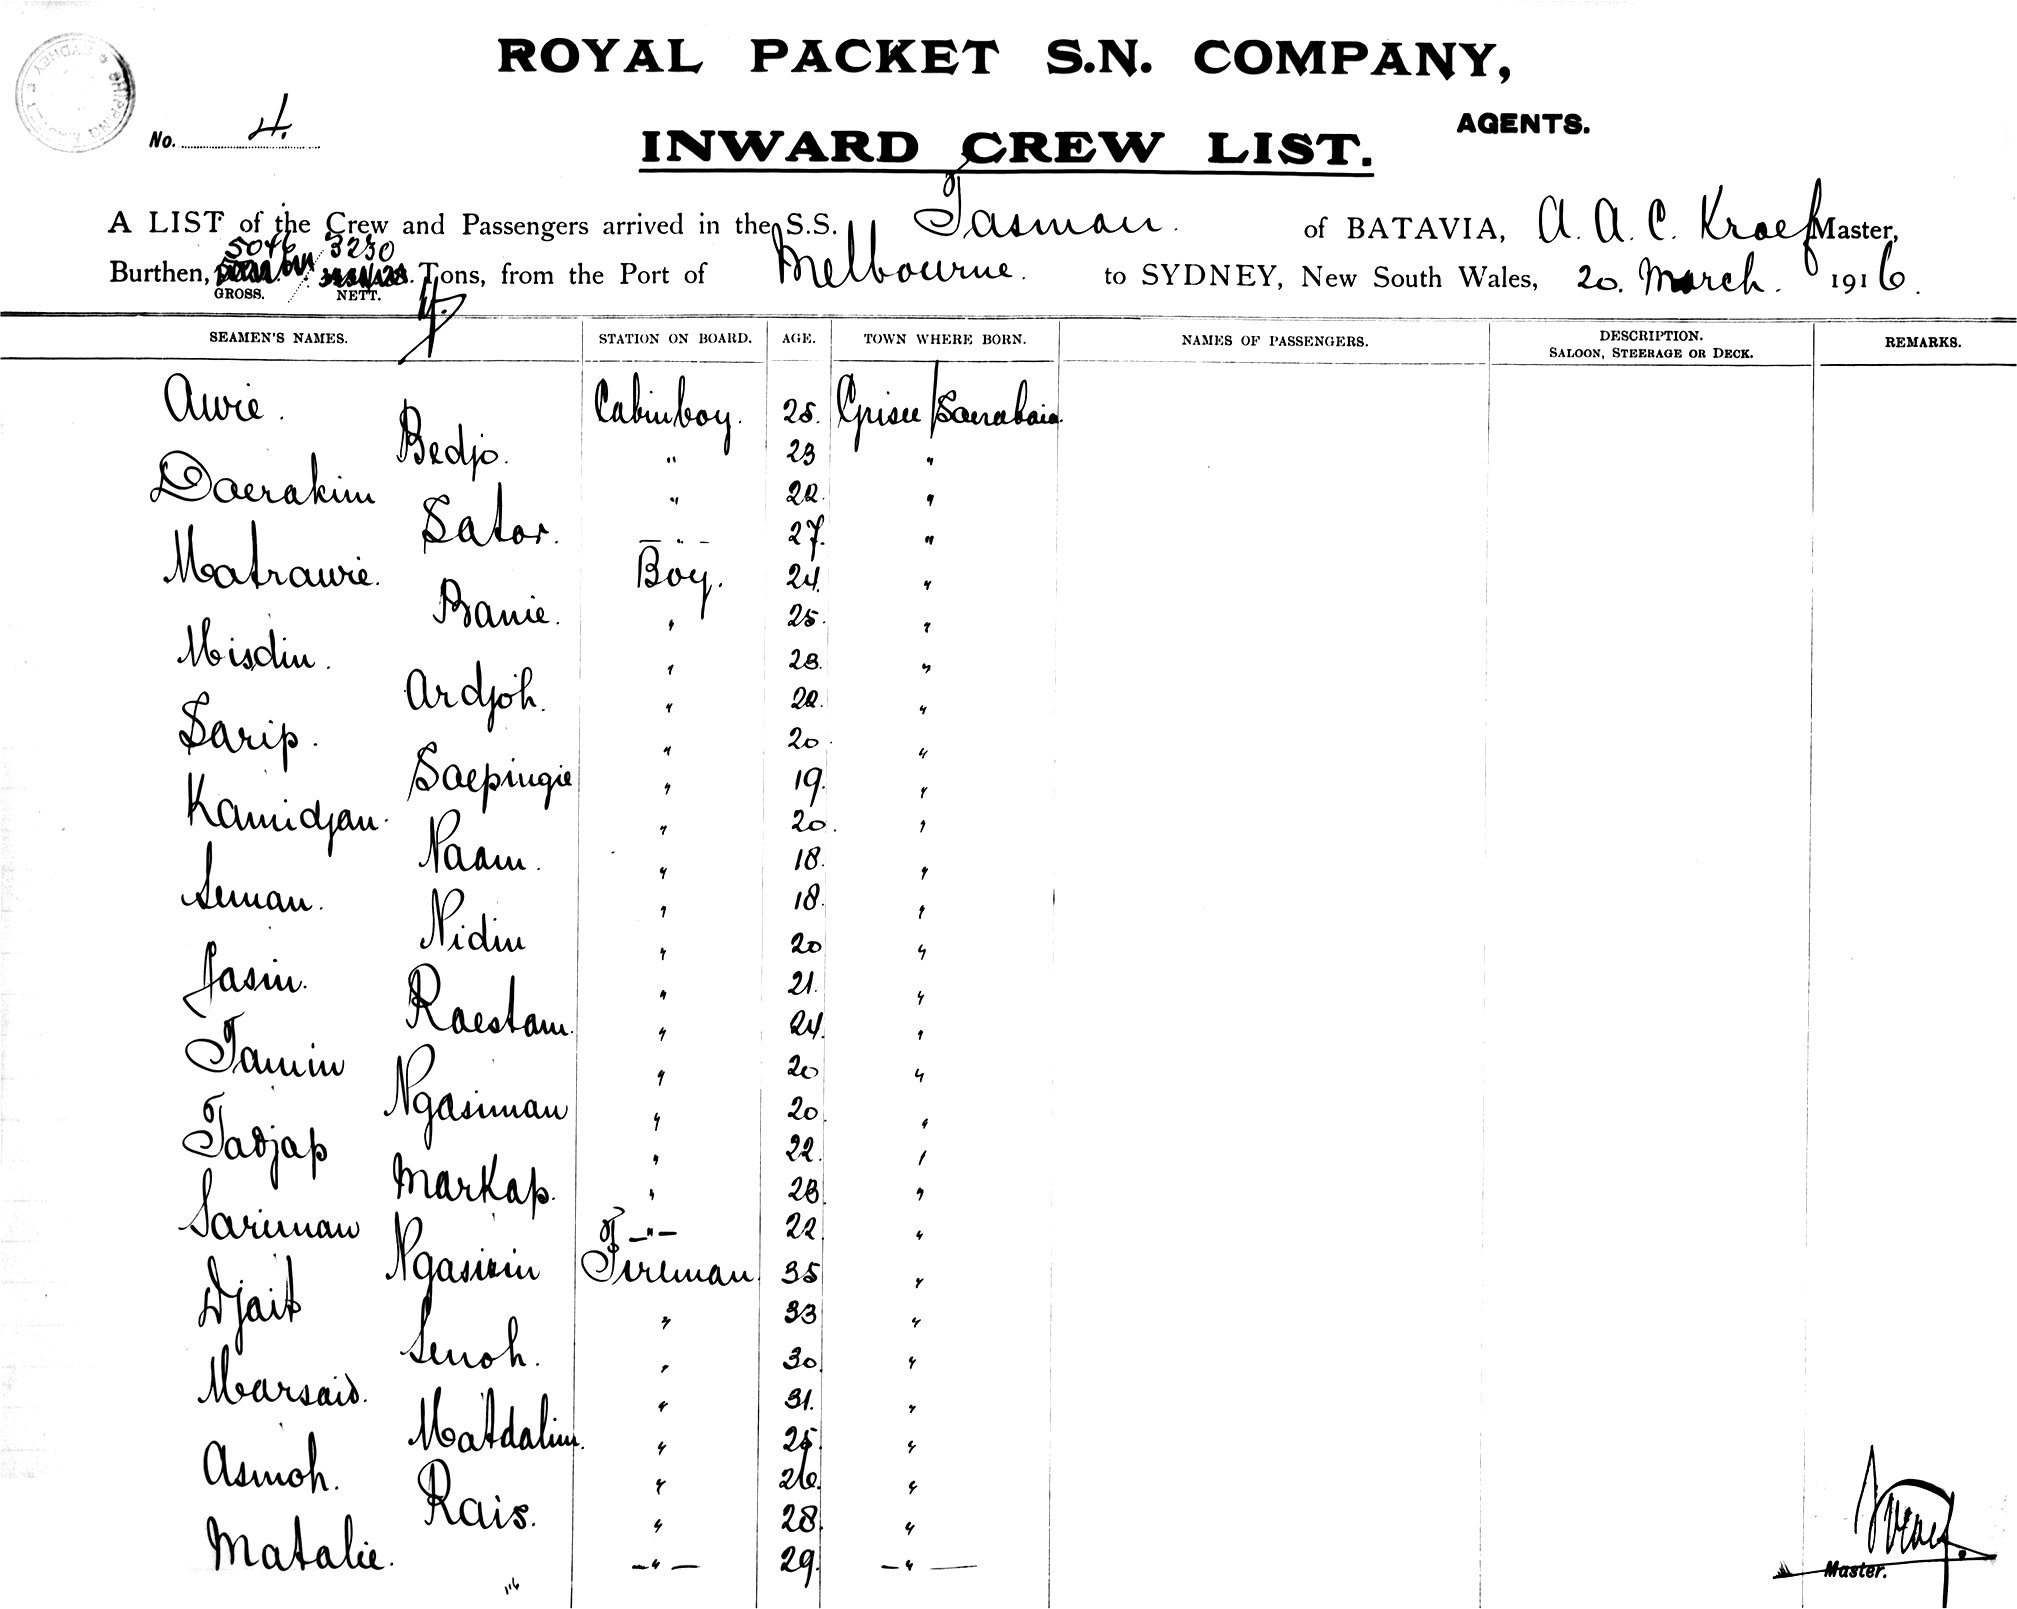 ROYAL PACKET S.N. COMPANY,
AGENTS.
No. 4.
INWARD CREW LIST.
A LIST of the Crew and Passengers arrived in the S.S. Tasman. of BATAVIA, A. A. C. Kroef Master,
Burthen, 5046 GROSS. 3230 NETT. Tons, from the Port of Melbourne. to SYDNEY, New South Wales, 20. March. 1916.
SEAMEN'S NAMES. STATION ON BOARD. AGE. TOWN WHERE BORN. NAMES OF PASSENGERS. DESCRIPTION. SALOON, STEERAGE OR DECK. REMARKS.
Awie. Cabinboy. 25. Grisee/Soerabaia.
Bedjo. " 23 "
Doerakim " 22. "
Sator. — " — 27. "
Matrawie. Boy. 24. "
Banie. " 25. "
Misdin. " 23. "
Ardjoh. " 22. "
Sarip. " 20 "
Soepingie " 19. "
Kamidjan. " 20. "
Naam. " 18. "
Seman. " 18. "
Nidin " 20 "
Jasin. " 21. "
Roestam. " 24. "
Tamin " 20 "
Ngasiman " 20. "
Tadjap " 22. "
Markap. " 23. "
Sariman — " — 22. "
Ngasirin Fireman 35 "
Djait " 33 "
Senoh. " 30. "
Marsaid. " 31. "
Matdalim. " 25. "
Asmoh. " 26. "
Rais. " 28. "
Matalie. — " — 29. — " —
Master.